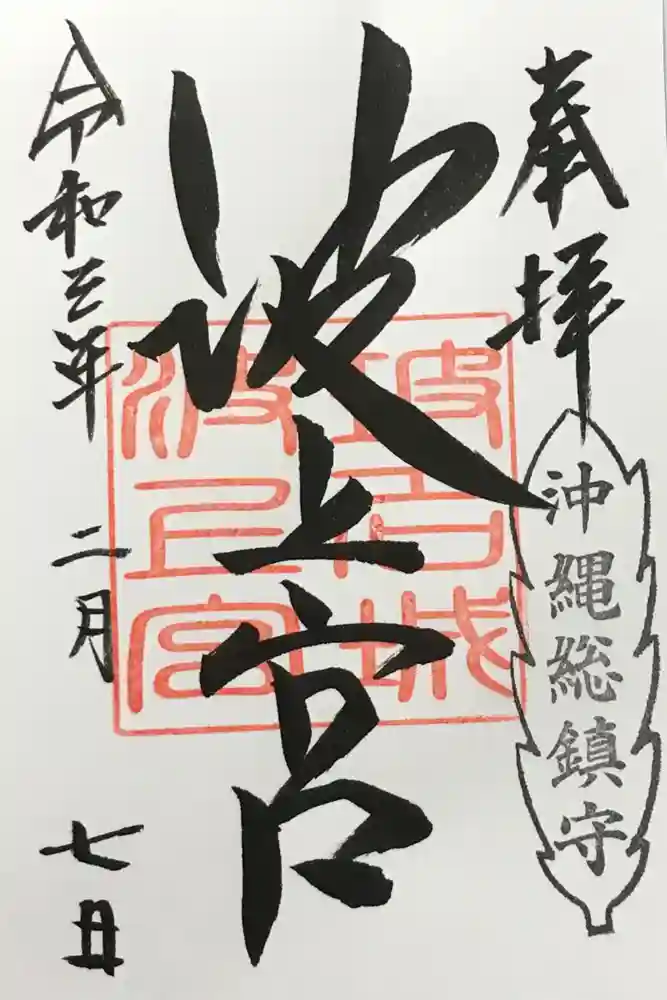 奉拝
沖縄総鎮守
波上宮
波上宮
令和三年
二月
七日